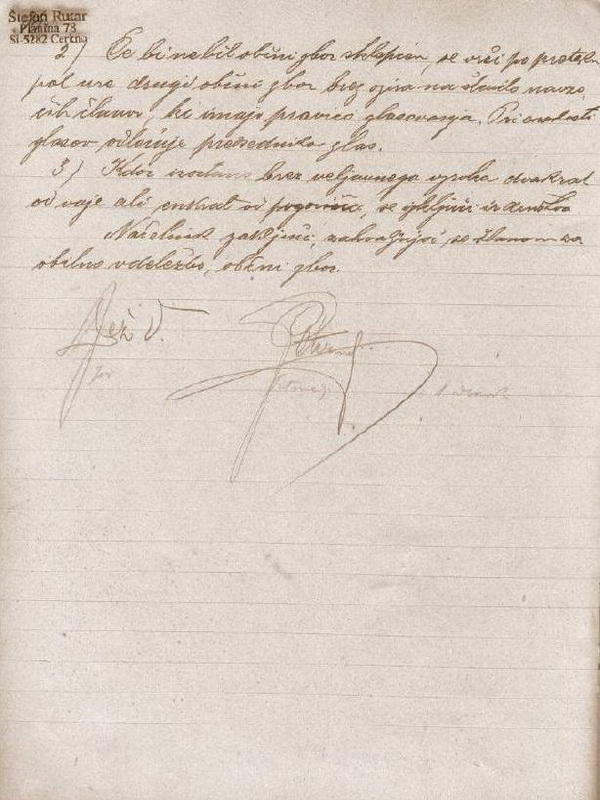 Štefan Rutar
Planina 73
SI-5282 Cerkno
2) Če bi ne bil občni zbor sklepčen, se vrši po preteku
pol ure drugi občni zbor brez ozira na število navzo-
čih članov, ki imajo pravico glasovanja. Pri enakosti
glasov odločuje predsednikov glas.
3) Kdor izostane brez veljavnega vzroka dvakrat
od vaje ali enkrat od pogovora, se izključi iz društva
Načelnik zaključi, zahvaljujoč se članom za
obilno vdeležbo, občni zbor.
Jež V.